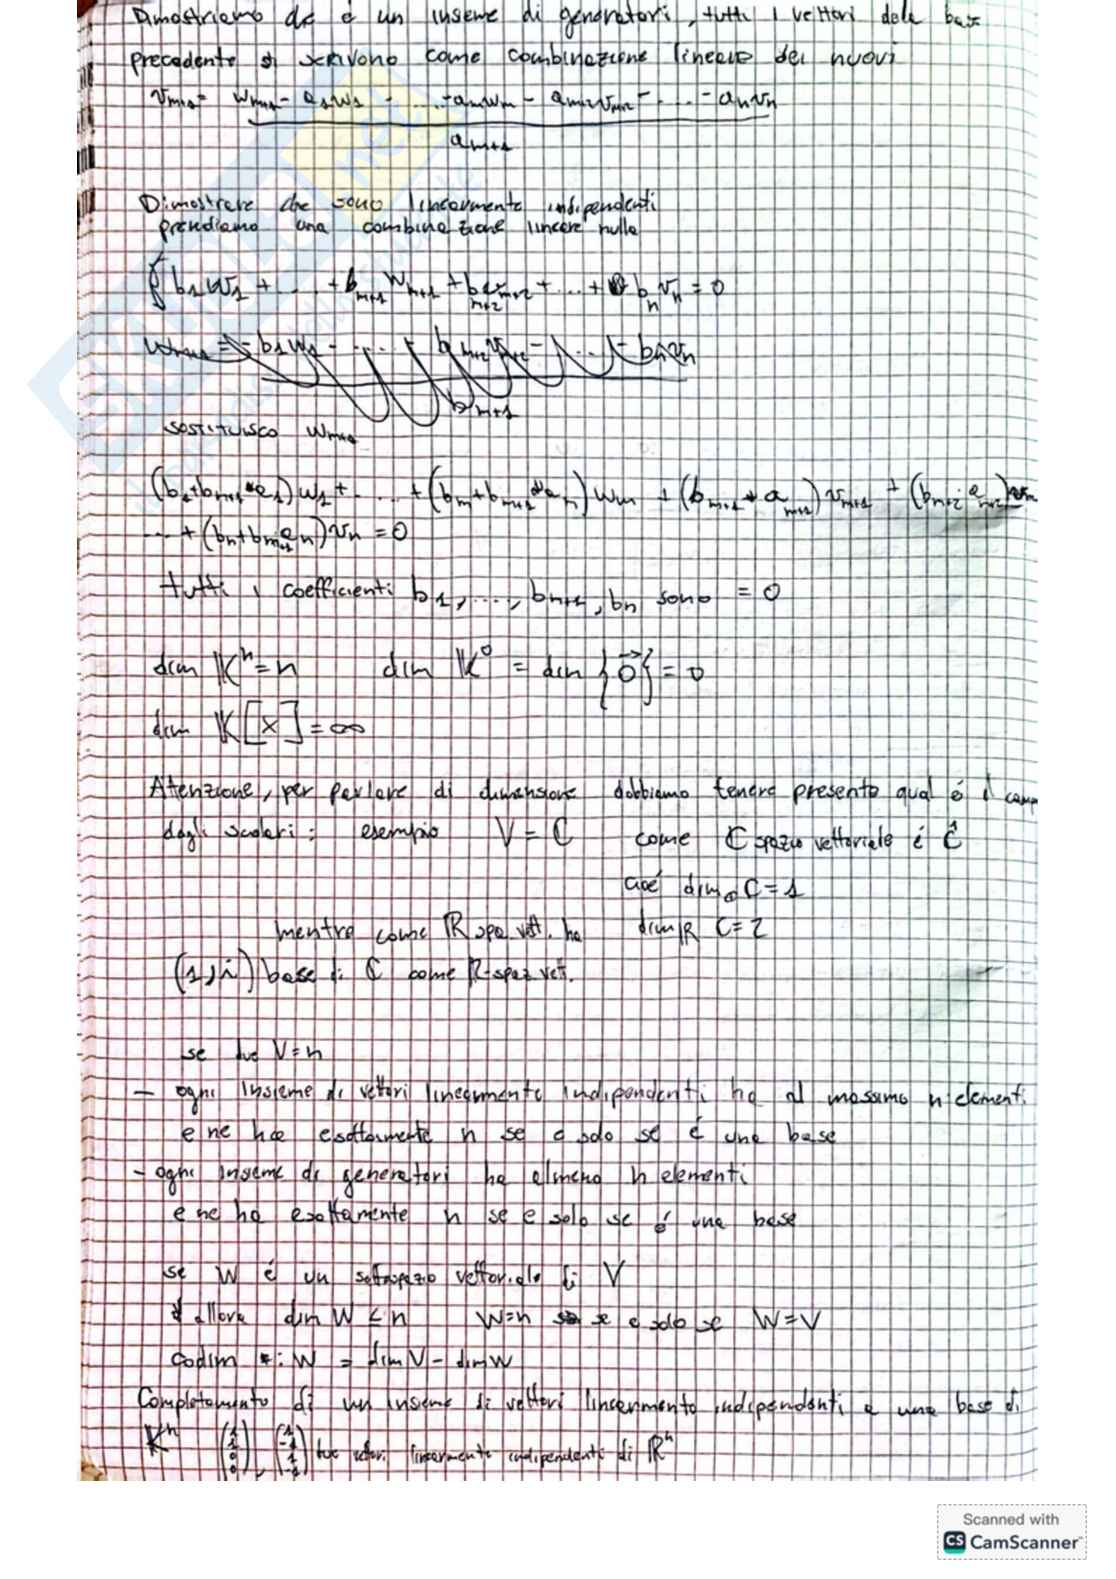 Dimostriamo che è un insieme di generatori, tutti i vettori della base
precedente si scrivono come combinazione lineare dei nuovi
v_{m+1} = \frac{w_{m+1} - a_1w_1 - ... - a_mw_m - a_{m+2}v_{m+2} - ... - a_nv_n}{a_{m+1}}
Dimostrare che sono linearmente indipendenti
prendiamo una combinazione lineare nulla
b_1w_1 + ... + b_{m+1}w_{m+1} + b_{m+2}v_{m+2} + ... + b_nv_n = 0
sostituisco w_{m+1}
(b_1+b_{m+1}a_1)w_1 + ... + (b_m+b_{m+1}a_m)w_m + (b_{m+1} a_{m+1})v_{m+1} + (b_{m+2} a_{m+2})
... + (b_n+b_{m+1}a_n)v_n = 0
tutti i coefficienti b_1, ..., b_{n+1}, b_n sono = 0
dim K^n = n dim K^0 = dim {\vec{0}} = 0
dim K[x] = ∞
Atenzione, per parlare di dimensione dobbiamo tenere presente qual è il camp
degli scalari: esempio V = C come C spazio vettoriale è
cioè dim_C C = 1
mentre come R spa. vett. ha dim_R C = 2
(1, i) base di C come R-spaz. vett.
se V = n
- ogni insieme di vettori linearmente indipendenti ha al massimo n elementi
e ne ha esattamente n se e solo se è una base
- ogni insieme di generatori ha almeno n elementi
e ne ha esattamente n se e solo se è una base
se W è un sottospazio vettoriale di V
allora dim W ≤ n W = n se e solo se W = V
codim W = dim V - dim W
Completamento di un insieme di vettori linearmente indipendenti a una base di
K^n (1 1 0 0), (1 -1 1 -1) due vettori linearmente indipendenti di R^n
Scanned with
CS CamScanner